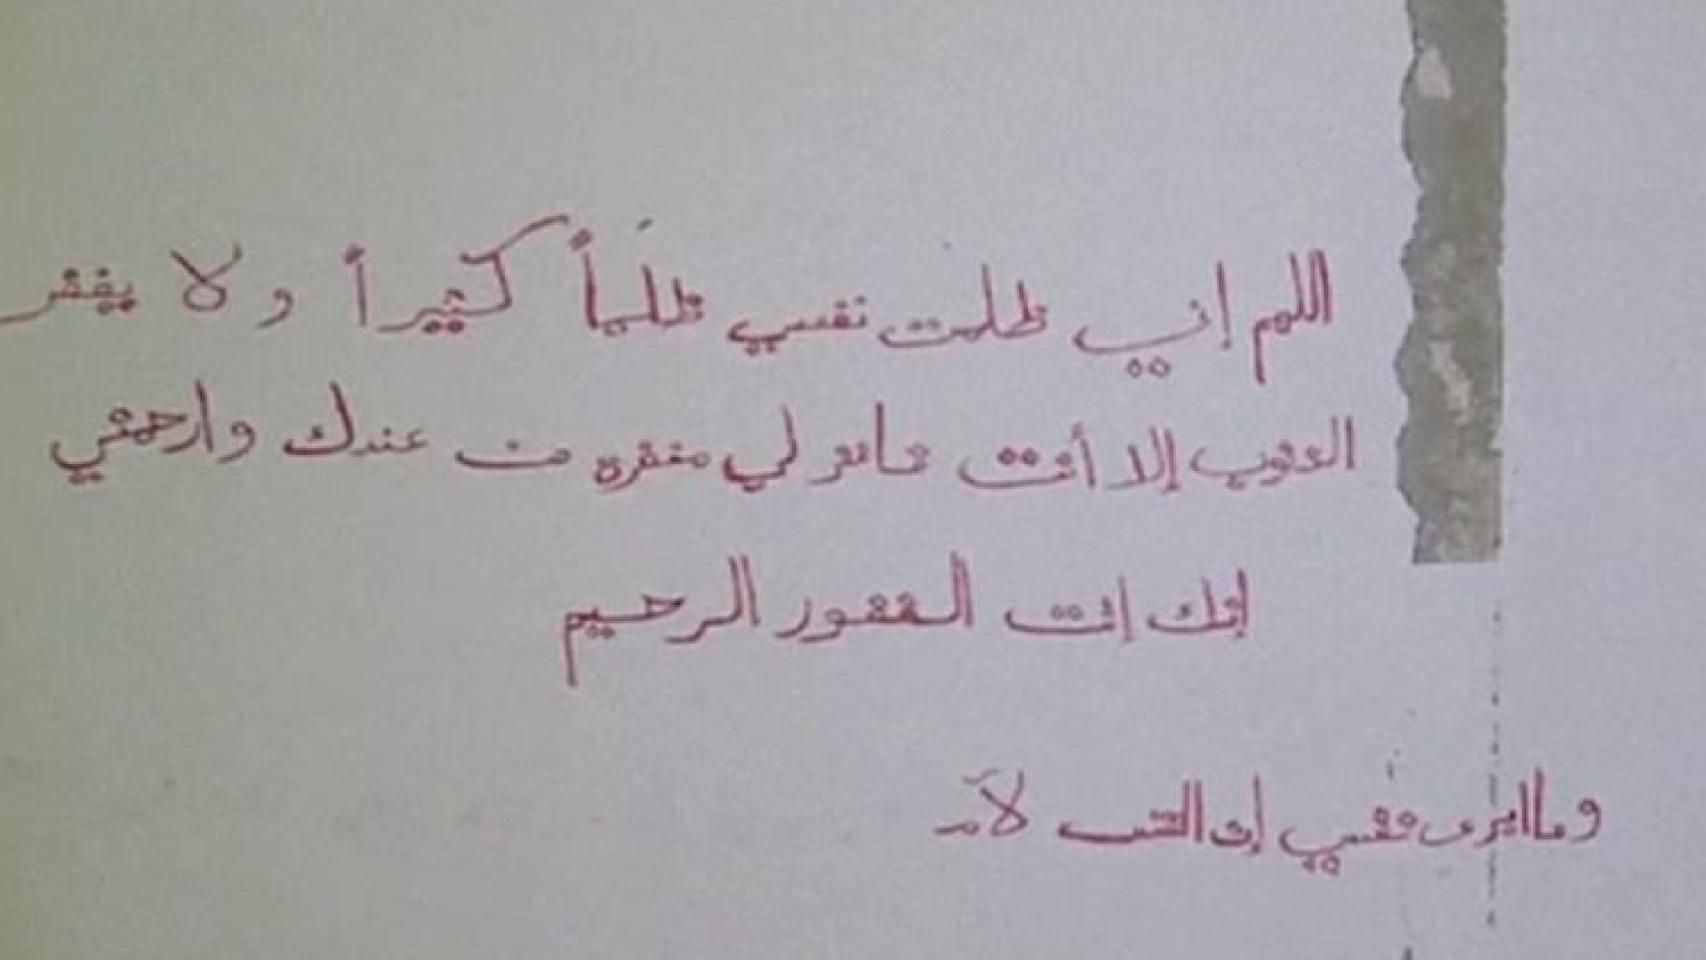 اللهم إني ظلمت نفسي ظلماً كثيراً ولا يغفر
الذنوب إلا أنت فاغفر لي مغفره من عندك وارحمني
انك انت الغفور الرحيم
وما ابرئ نفسي إن النفس لأمـ